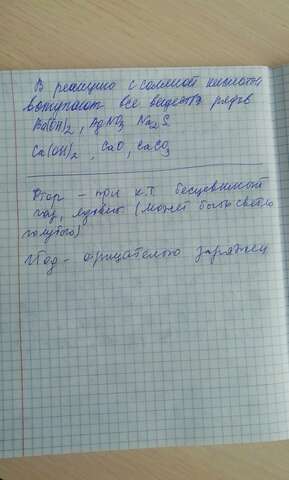 В реакцию с соляной кислотой
вступают все вещества рядов
Ba(OH)2, AgNO3 Na2S
Ca(OH)2, CaO, CaCO3
Фтор – при к.т бесцветный
газ, (может быть светло
голубого)
Йод – отрицательно заряжен